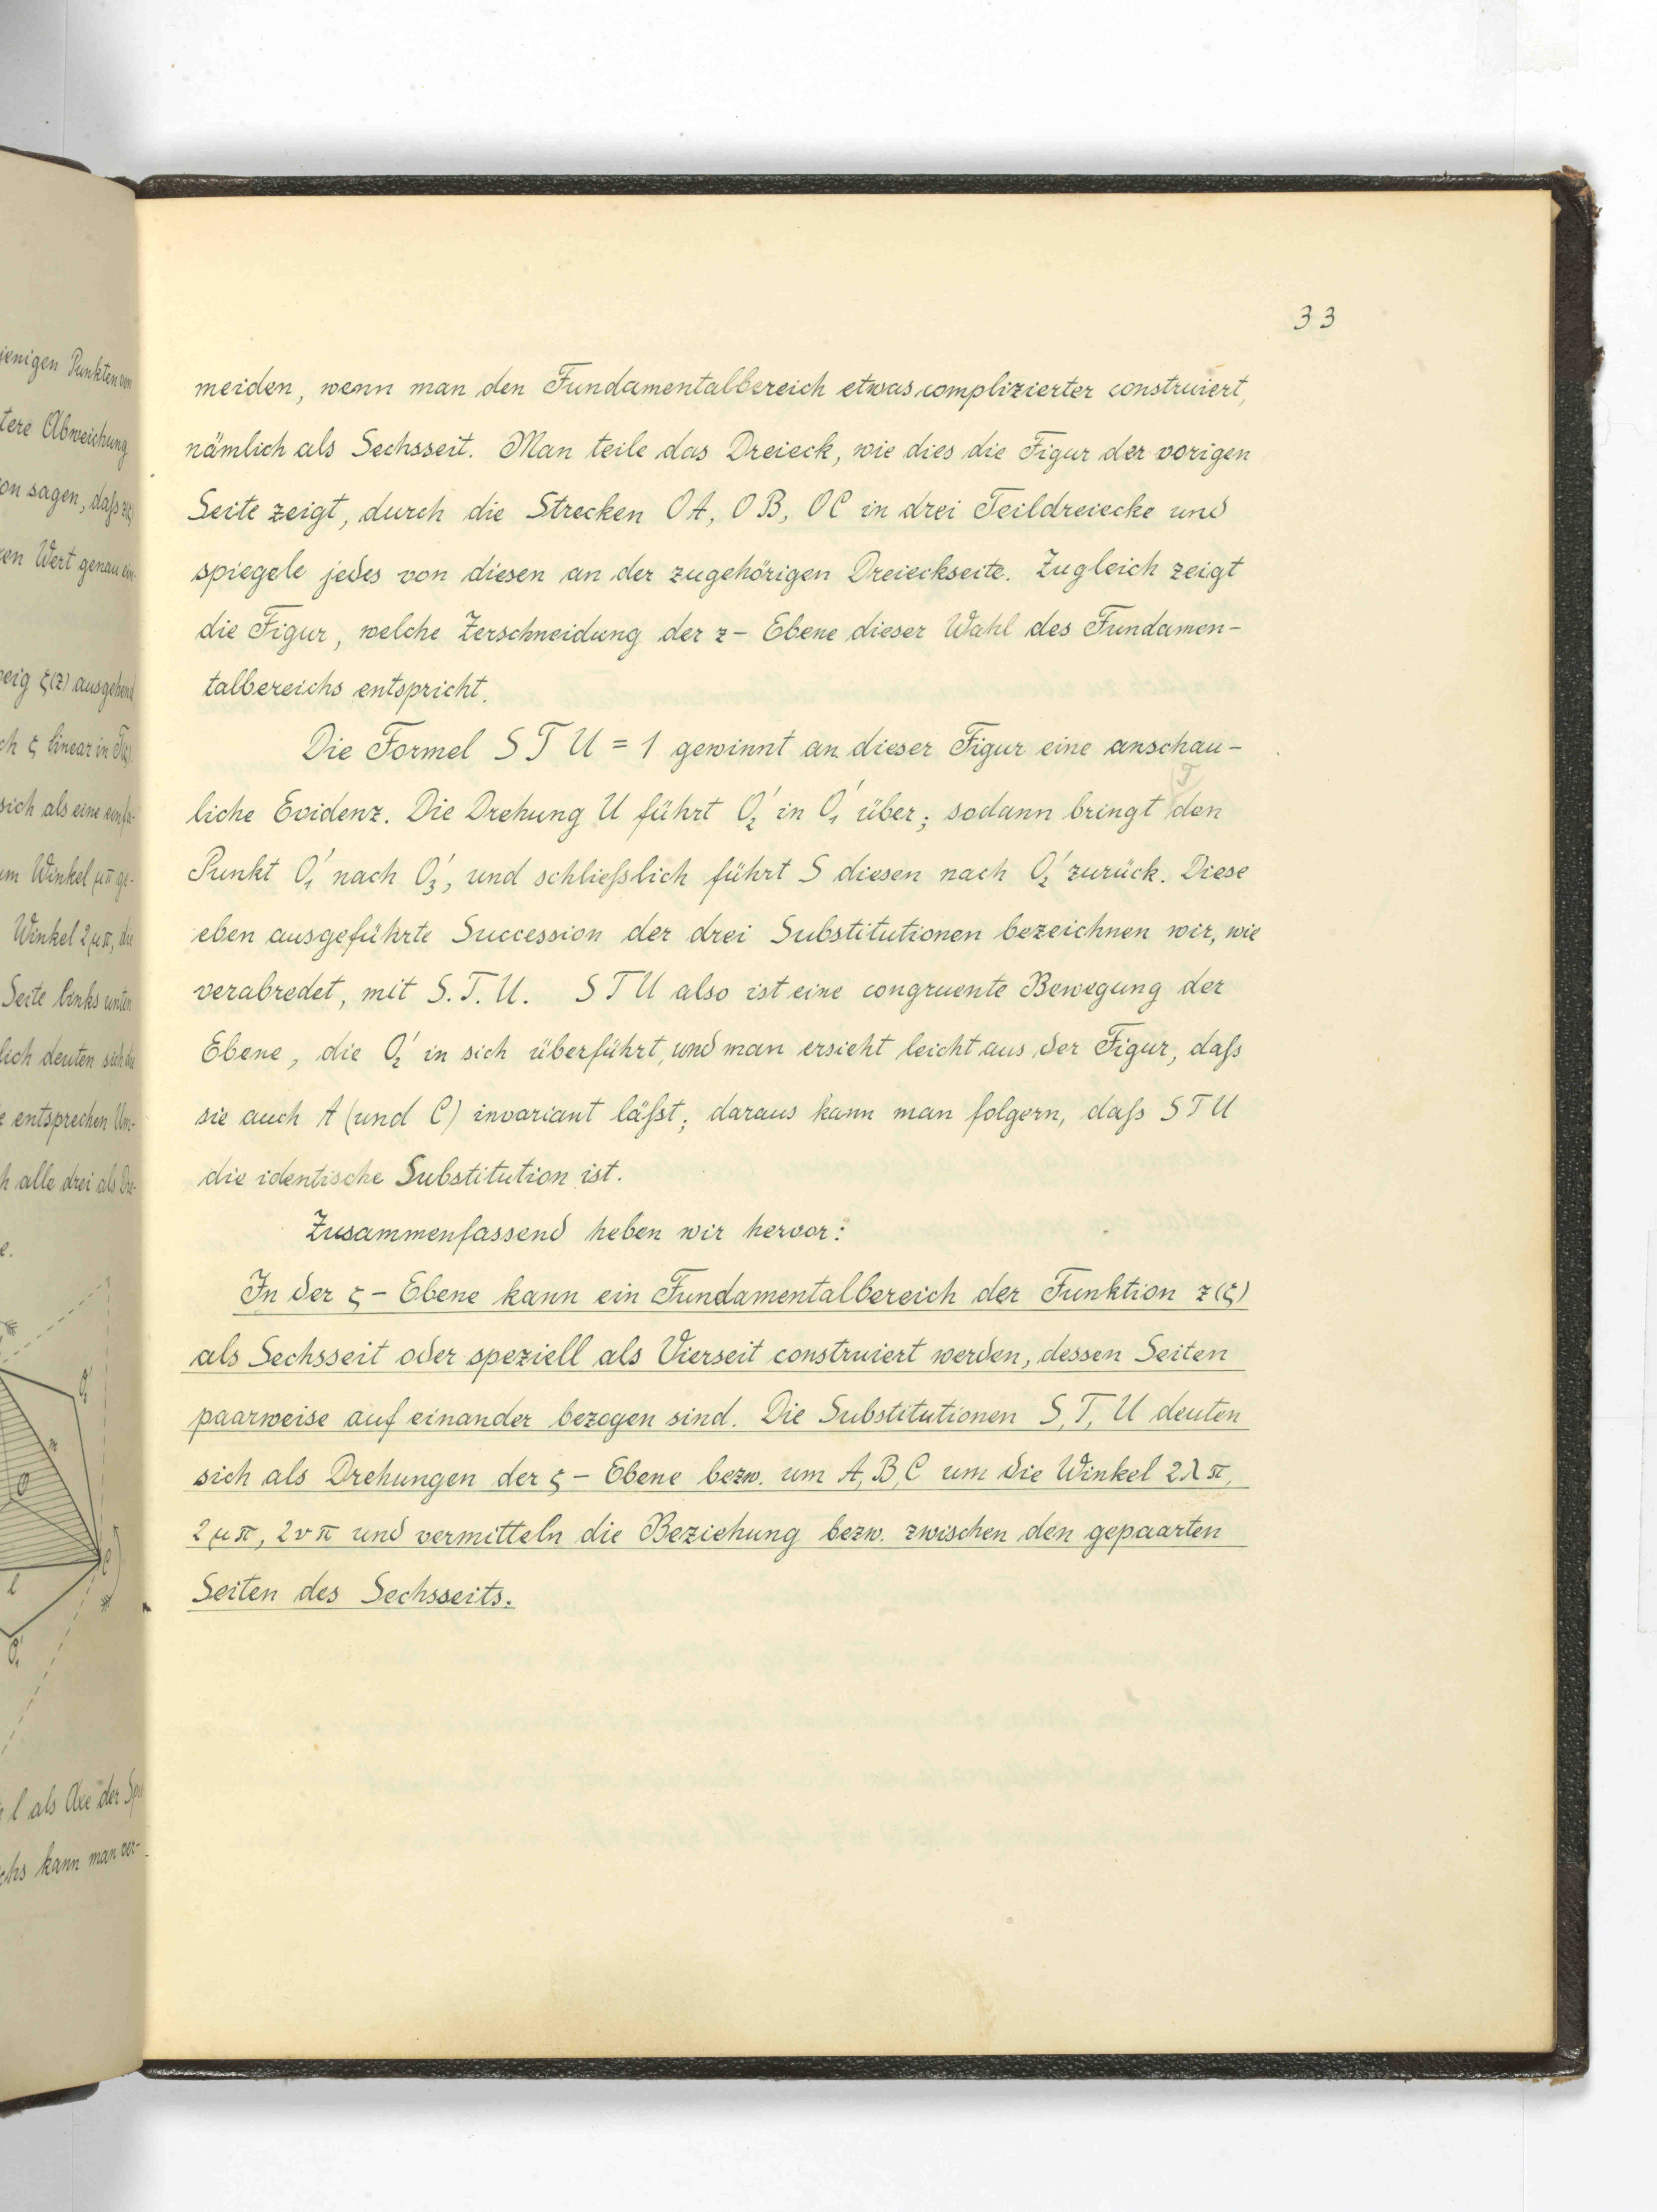 33
meiden, wenn man den Fundamentalbereich etwas complizierter construiert,
nämlich als Sechsseit. Man teile das Dreieck, wie dies die Figur der vorigen
Seite zeigt, durch die Strecken OA, OB, OC in drei Teildreiecke und
spiegele jedes von diesen an der zugehörigen Dreieckseite. Zugleich zeigt
die Figur, welche Zerschneidung der z-Ebene dieser Wahl des Fundamen-
talbereichs entspricht.
Die Formel S T U = 1 gewinnt an dieser Figur eine anschau-
liche Evidenz. Die Drehung U führt O₂' in O₁' über; sodann bringt T den
Punkt O₁' nach O₃', und schließslich führt S diesen nach O₂' zurück. Diese
eben ausgeführte Succession der drei Substitutionen bezeichnen wir, wie
verabredet, mit S. T. U. S T U also ist eine congruente Bewegung der
Ebene, die O₂' in sich überführt, und man ersieht leicht aus der Figur, daſs
sie auch A (und C) invariant läſst; daraus kann man folgern, daſs S T U
die identische Substitution ist.
Zusammenfassend heben wir hervor:
In der ζ-Ebene kann ein Fundamentalbereich der Funktion z(ζ)
als Sechsseit oder speziell als Vierseit construiert werden, dessen Seiten
paarweise auf einander bezogen sind. Die Substitutionen S, T, U deuten
sich als Drehungen der ζ-Ebene bezw. um A, B, C um die Winkel 2λπ,
2μπ, 2νπ und vermitteln die Beziehung bezw. zwischen den gepaarten
Seiten des Sechsseits.
jenigen Punkten von
tere Abweichung
on sagen, daſs
en Wert genau ein-
eig ζ(z) ausgehend
ch ζ linear in
sich als eine einfa-
um Winkel μπ ge-
Winkel 2μπ, die
Seite links unten
lich deuten sich die
entsprechen Um-
h alle drei als Dre-
e.
O
C
l
O₁'
l als Axe der
chs kann man ver-